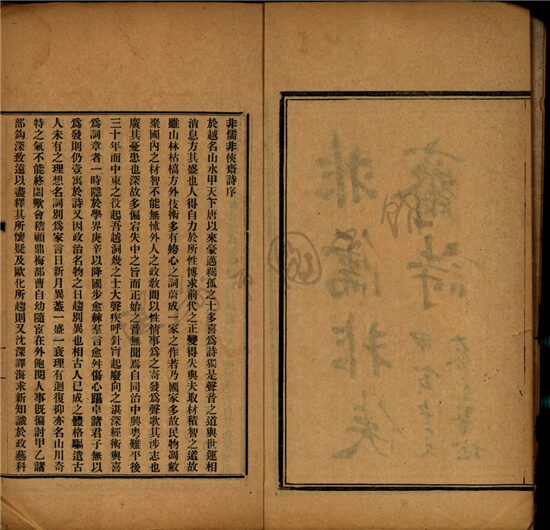 非儒非俠齋詩序
於越名山水甲天下唐以來豪邁羈孤之士多喜爲詩獨是聲音之道與世運相
消息方其盛也人得自力於所性博求前代之正變得失與夫取材積智之道故
雖山林枯槁方外技術多有銜心之詞蔚成一家之作若乃國家多故民物凋敝
衆國內之材智不能無怵外人之政敎間以性情事爲之寄發爲聲歌其涉志也
廣其憂患也深故多偏宕失中之旨而正始之音無聞焉自同治中興粤難平後
三十年而中東之役起吾越詞幾之士大聲疾呼針肓起廢向之湛深經術與喜
爲詞章者一時隱於學界庚辛以降國步愈棘羣言愈舛傷心蹋卓諸君子無以
爲發則仍壹寓於詩又因政治名物之日趨別異也相古人已成之體格驅遣古
人未有之理想名詞別爲家言日新月異蓋一盛一衰理有迴復抑亦名山川奇
特之氣不能終悶歟會稽顧鼎梅部曹自幼隨宦在外飽閱人事旣徧討甲乙諸
部鈎深致遠以盡釋其所懷疑及歐化所趨則又沈深譯海求新知識於政藝科
非儒非俠
齋詩